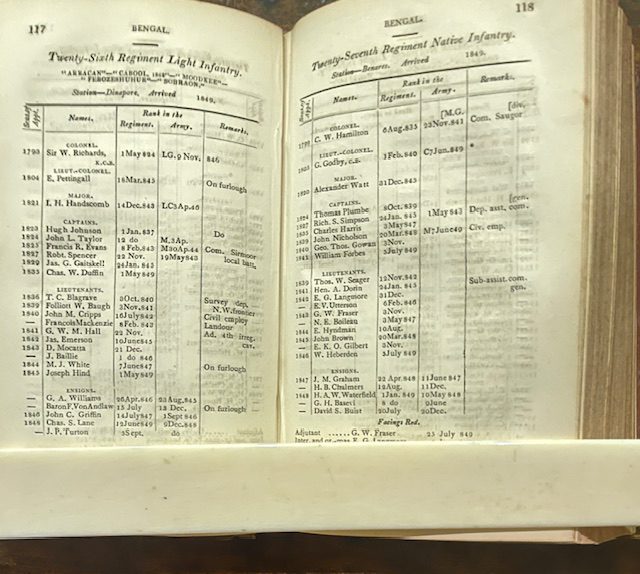 117
BENGAL.
Twenty-Sixth Regiment Light Infantry.
"ARRACAN"—"CABOOL, 1842"—"MOODKEE"—
"FEROZESHUHUR"—"SOBRAON."
Station—Dinapore, Arrived 1849.
Season Appt. Names. Rank in the Regiment. Army. Remarks.
COLONEL.
1790 Sir W. Richards, K.C.B. 1 May 824 LG. 9 Nov. 846
LIEUT-COLONEL.
1804 E. Pettingall 18 Mar. 845 On furlough
MAJOR.
1821 I. H. Handscomb 14 Dec. 843 LC 3 Ap. 46
CAPTAINS.
1823 Hugh Johnson 1 Jan. 837 Do
1824 John L. Taylor 12 do M. 3 Ap.
1825 Francis R. Evans 8 Feb. 843 M 30 Ap. 44 Com. Sirmoor
1827 Robt. Spencer 22 Nov. 19 May 843 local batt.
1829 Jas. G. Gaitskell 24 Jan. 845
1835 Chas. W. Duffin 1 May 849
LIEUTENANTS.
1836 T. C. Blagrave 3 Oct. 840 Survey dep.
1839 Folliott W. Baugh 3 Nov. 841 N.W. frontier
1840 John M. Cripps 16 July 842 Civil employ
— Francois Mackenzie 8 Feb. 843 Landour
1841 G. W. M. Hall 22 Nov. Ad. 4th irreg.
1842 Jas. Emerson 10 June 845 cav.
1843 D. Mocatta 21 Dec.
— J. Baillie 1 do 846
1844 M. J. White 7 June 847 On furlough
1845 Joseph Hind 1 May 849
ENSIGNS.
— G. A. Williams 26 Apr. 846 23 Aug. 845
— Baron F. Von Andlaw 15 July 13 Dec. On furlough
1846 John C. Griffin 14 July 847 3 Sept 846
1848 Chas. S. Lane 12 June 849 9 Dec. 848
— J. P. Turton 3 Sept. do
BENGAL.
118
Twenty-Seventh Regiment Native Infantry.
Station—Benares. Arrived 1849.
Season Appt. Names. Rank in the Regiment. Army. Remarks.
COLONEL.
1799 C. W. Hamilton 6 Aug. 835 [M.G. 23 Nov. 841 Com. Saugor [div.
LIEUT.-COLONEL.
1805 C. Godby, C.B. 3 Feb. 840 C 7 Jun. 849
MAJOR.
1820 Alexander Watt 31 Dec. 845
CAPTAINS.
1824 Thomas Plumbe 8 Oct. 839 [gen.
1827 Rich. S. Simpson 24 Jan. 845 1 May 843 Dep. asst. com.
1835 Charles Harris 3 May 847
1839 John Nicholson 20 Mar. 848 M 7 June 49 Civ. emp.
1840 Geo. Thos. Gowan 3 Nov.
1842 William Forbes 5 July 849
LIEUTENANTS.
1839 Thos. W. Seager 12 Nov. 842 Sub-assist. com.
1841 Hen. A. Dorin 24 Jan. 845 gen.
1842 E. G. Langmore 31 Dec.
— E. V. Utterson 6 Feb. 846
1843 G. W. Fraser 3 Nov.
— N. E. Boileau 3 May 847
1844 E. Hyndman 10 Aug.
1845 John Brown 20 Mar. 848
— E. K. O. Gilbert 3 Nov.
1846 W. Heberden 5 July 849
ENSIGNS.
1847 J. M. Graham 22 Apr. 848 11 June 847
— H. B. Chalmers 12 Aug. 11 Dec.
1848 H. A. W. Waterfield 1 Jan. 849 10 May 848
— G. H. Basevi 8 do 9 June
— David S. Buist 20 July 20 Dec.
Facings Red.
Adjutant ...... G. W. Fraser 25 July 849